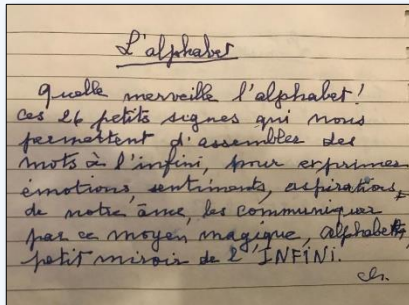 L'alphabet
Quelle merveille l'alphabet!
ces 26 petits signes qui nous
permettent d'assembler des
mots à l'infini, pour exprimer
émotions, sentiments, aspirations,
de notre âme, les communiquer
par ce moyen magique, alphabet,
petit miroir de l'INFINI.
ch.